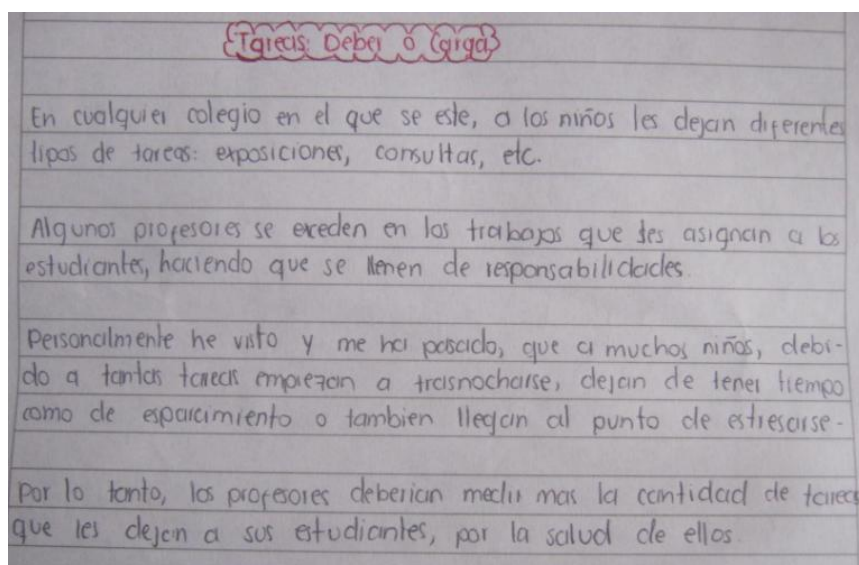 Tareas: Deber ó Carga
En cualquier colegio en el que se este, a los niños les dejan diferentes
tipos de tareas: exposiciones, consultas, etc.
Algunos profesores se exceden en los trabajos que les asignan a los
estudiantes, haciendo que se llenen de responsabilidades.
Personalmente he visto y me ha pasado, que a muchos niños, debi-
do a tantas tareas empiezan a trasnocharse, dejan de tener tiempo
como de esparcimiento o tambien llegan al punto de estresarse.
Por lo tanto, los profesores deberian medir mas la cantidad de tareas
que les dejan a sus estudiantes, por la salud de ellos.